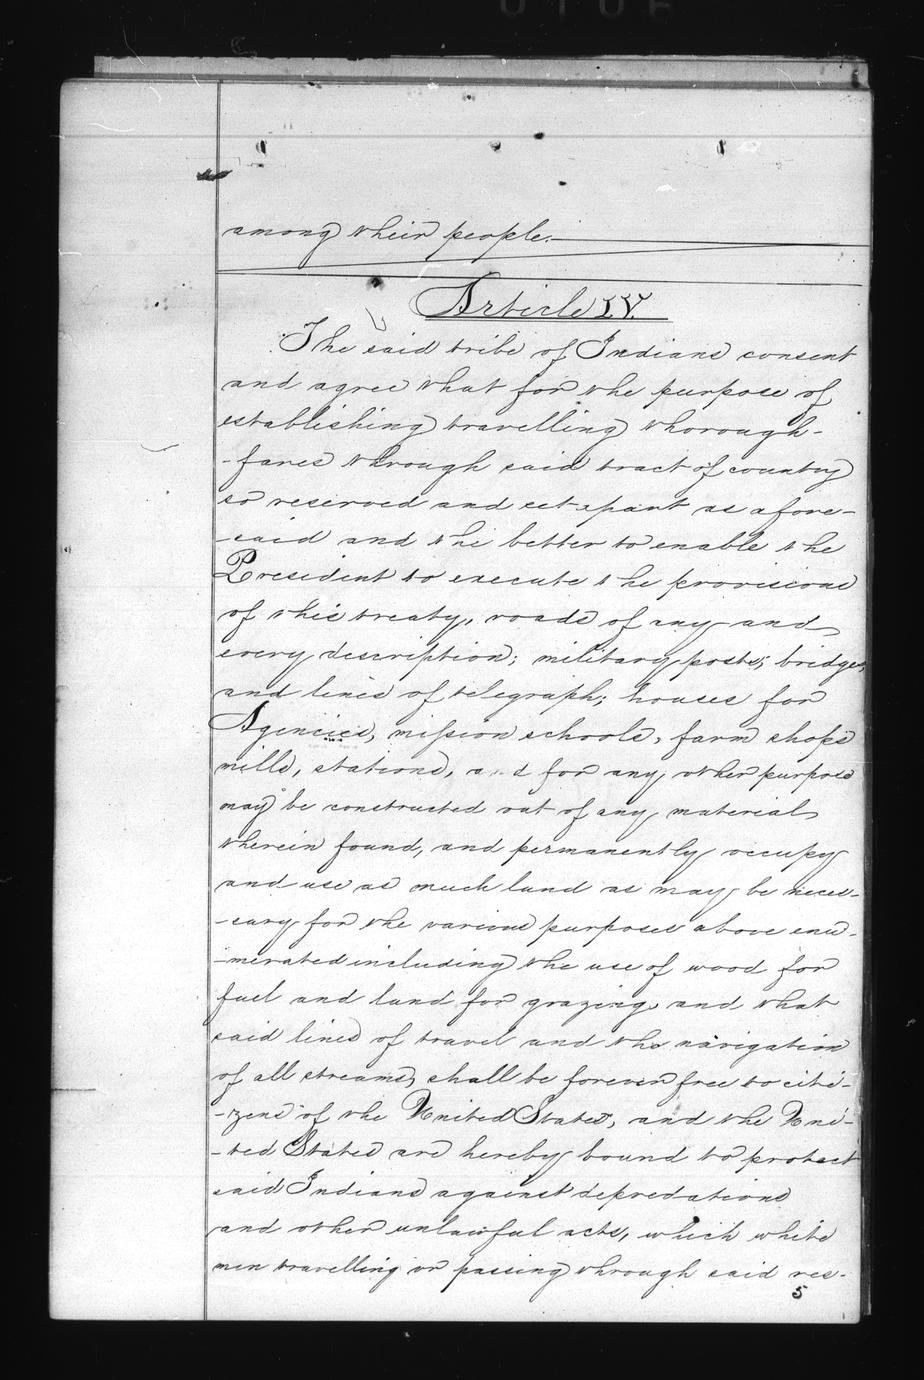 among their people.
Article IV.
The said tribe of Indians consent
and agree that for the purpose of
establishing travelling thorough-
-fares through said tract of country
so reserved and set apart as afore-
-said and the better to enable the
President to execute the provisions
of this treaty, roads of any and
every description; military posts; bridges,
and lines of telegraph; houses for
Agencies, mission schools, farm shops
mills, stations, and for any other purpose
may be constructed out of any material
therein found, and permanently occupy
and use as much land as may be neces-
-sary for the various purposes above enu-
-merated including the use of wood for
fuel and land for grazing and that
said lines of travel and the navigation
of all streams, shall be forever free to citi-
-zens of the United States, and the Uni-
-ted States are hereby bound to protect
said Indians against depredations
and other unlawful acts, which white
men travelling or passing through said res-
5